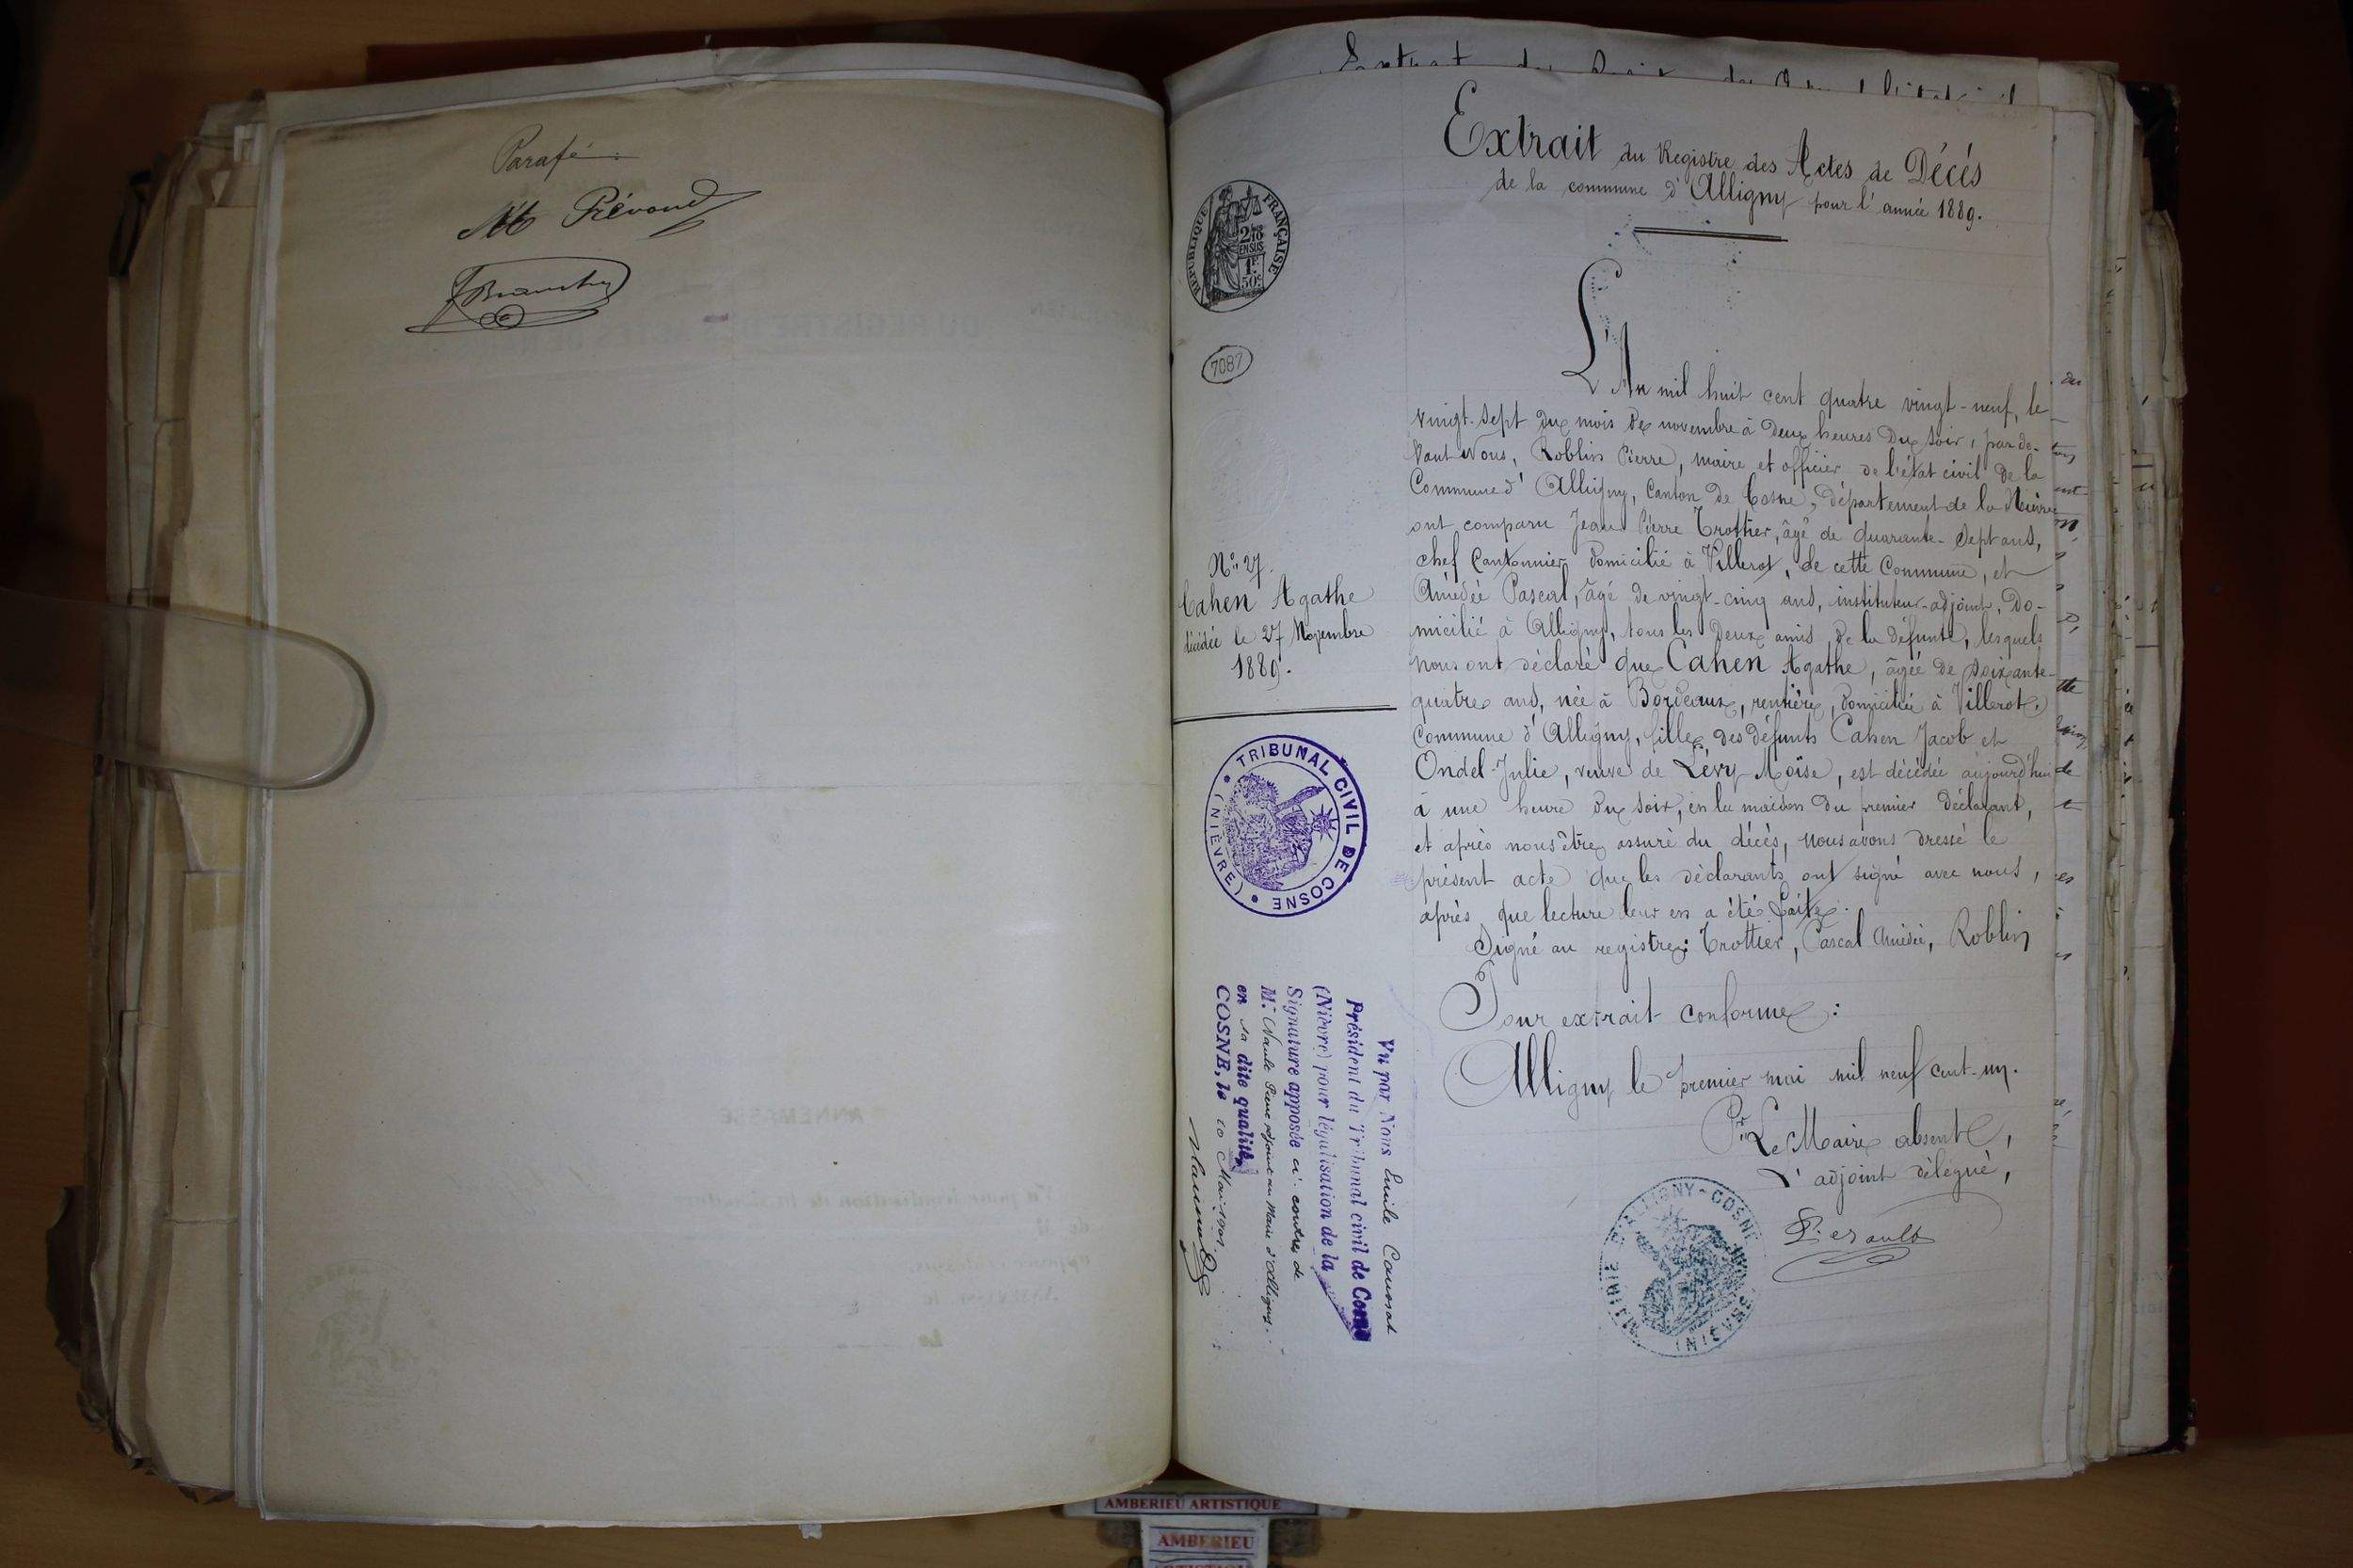 Parafé :
Extrait du Registre des Actes de Décès
de la commune d'Alligny pour l'année 1889.
RÉPUBLIQUE FRANÇAISE
2/10
EN SUS
1F
50c
7087
L'An mil huit cent quatre vingt-neuf, le
vingt-sept du mois de novembre à deux heures du soir, par de-
vant Nous, Roblin Pierre, maire et officier de l'état civil de la
Commune d'Alligny, Canton de Cosne, département de la Nièvre
ont comparu Jean Pierre Trottier, âgé de quarante-sept ans,
chef Cantonnier domicilié à Villerot, de cette Commune, et
Amédée Pascal, âgé de vingt-cinq ans, instituteur-adjoint, do-
micilié à Alligny, tous les deux amis de la défunte, lesquels
nous ont déclaré que Cahen Agathe, âgée de soixante-
quatre ans, née à Bordeaux, rentière, domiciliée à Villerot,
Commune d'Alligny, fille des défunts Cahen Jacob et
Ondel Julie, veuve de Lévy Moïse, est décédée aujourd'hui
à une heure du soir, en la maison du premier déclarant,
et après nous être assuré du décès, nous avons dressé le
présent acte que les déclarants ont signé avec nous,
après que lecture leur en a été faite.
Signé au registre : Trottier, Pascal Amédée, Roblin
Pour extrait conforme :
Alligny le premier mai mil neuf cent-un.
Pr Le Maire absent,
L'adjoint délégué,
MAIRIE D'ALLIGNY-COSNE (NIÈVRE)
N° 27.
Cahen Agathe
décédée le 27 Novembre
1889.
TRIBUNAL CIVIL DE COSNE (NIÈVRE)
Vu par Nous Emile
Président du Tribunal civil de Cosne
(Nièvre) pour légalisation de la
Signature apposée ci contre de
M. adjoint au Maire d'Alligny
en sa dite qualité,
COSNE, le 10 Mai 1901
ANNEMASSE
AMBERIEU ARTISTIQUE
AMBERIEU
ARTISTIQUE